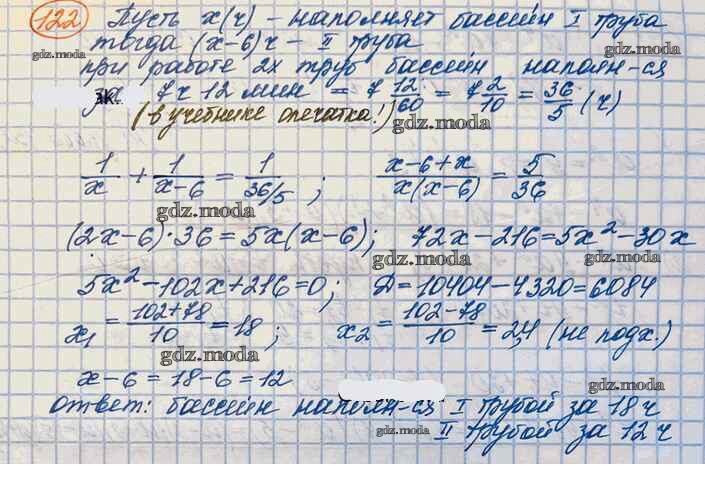 122 Пусть x(ч) - наполняет бассейн I труба
gdz.moda
тогда (x-6)ч - II труба
gdz.moda
при работе 2х труб бассейн наполн-ся
за 7ч 12 мин = 7 12/60 = 7 2/10 = 36/5 (ч)
(в учебнике опечатка!)
gdz.moda
1/x + 1/(x-6) = 1/(36/5) ; (x-6+x)/(x(x-6)) = 5/36
gdz.moda
(2x-6)·36 = 5x(x-6); 72x-216=5x²-30x
gdz.moda gdz.moda
5x²-102x+216=0; D=10404-4320=6084
x₁ = (102+78)/10 = 18 ; x₂ = (102-78)/10 = 2,4 (не подх.)
gdz.moda
x-6 = 18-6 = 12
gdz.moda
ответ: бассейн наполн-ся I трубой за 18 ч
gdz.moda
II трубой за 12 ч